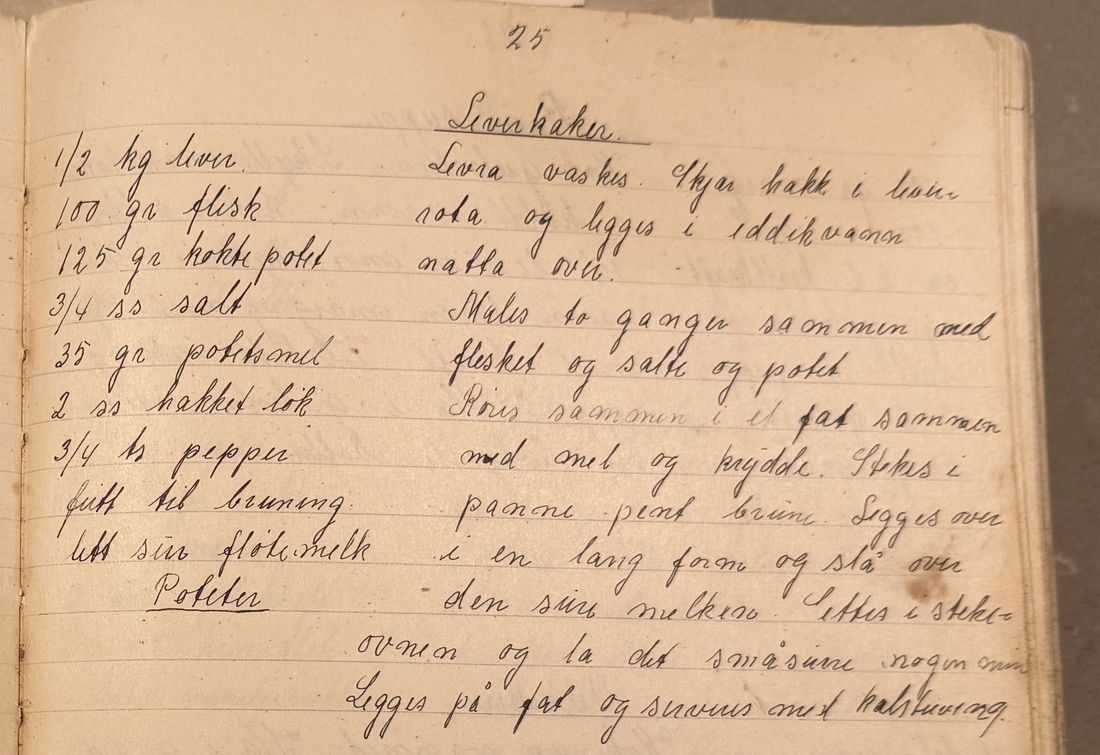 25
Leverkaker.
1/2 kg lever.
100 gr flesk
125 gr kokte potet
3/4 ss salt
35 gr potetsmel
2 ss hakket løk
3/4 ts pepper
fett til bruning.
litt sur fløtemelk
Poteter
Levra vaskes. Skjær hakk i lever
rota og legges i eddikvann
natta over.
Males to ganger sammen med
flesket og salte og potet
Røres sammen i et fat sammen
med mel og krydde. Stekes i
panne pent brune. Legges over
i en lang form og slå over
den sure melken. Settes i steke-
ovnen og la det småsurre nogen min
Legges på fat og serveres med kålstuving.